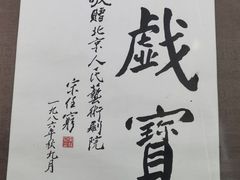 戲寶
敬贈北京人民藝術劇院
宗任窮
一九八六年秋九月